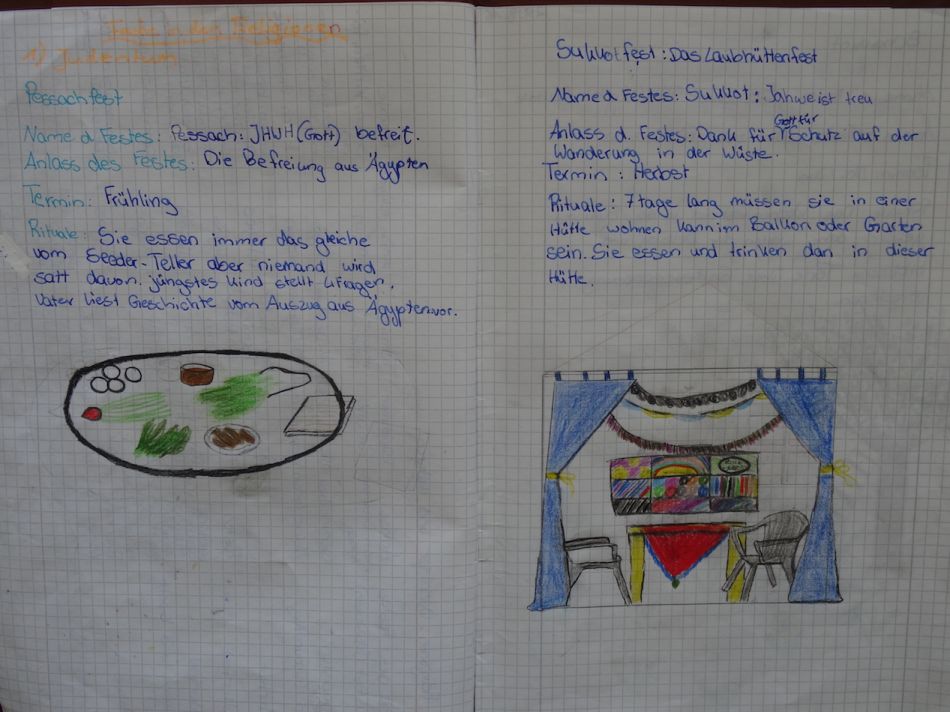 Feste in den Religionen
1) Judentum
Pessachfest
Name d Festes: Pessach: JHWH (Gott) befreit.
Anlass des Festes: Die Befreiung aus Ägypten
Termin: Frühling
Rituale: Sie essen immer das gleiche
vom Seeder-Teller aber niemand wird
satt davon. jüngstes kind stellt 4 fragen.
Vater liest Gieschichte vom Auszug aus Ägypten vor.
Sukkotfest: Das Laubhüttenfest
Name d Festes: Sukkot: Jahwe ist treu
Anlass d. Festes: Dank für Gott für Schutz auf der
Wanderung in der Wüste.
Termin: Herbst
Rituale: 7 tage lang müssen sie in einer
Hütte wohnen kann im Balkon oder Garten
sein. Sie essen und trinken dan in dieser
Hütte.